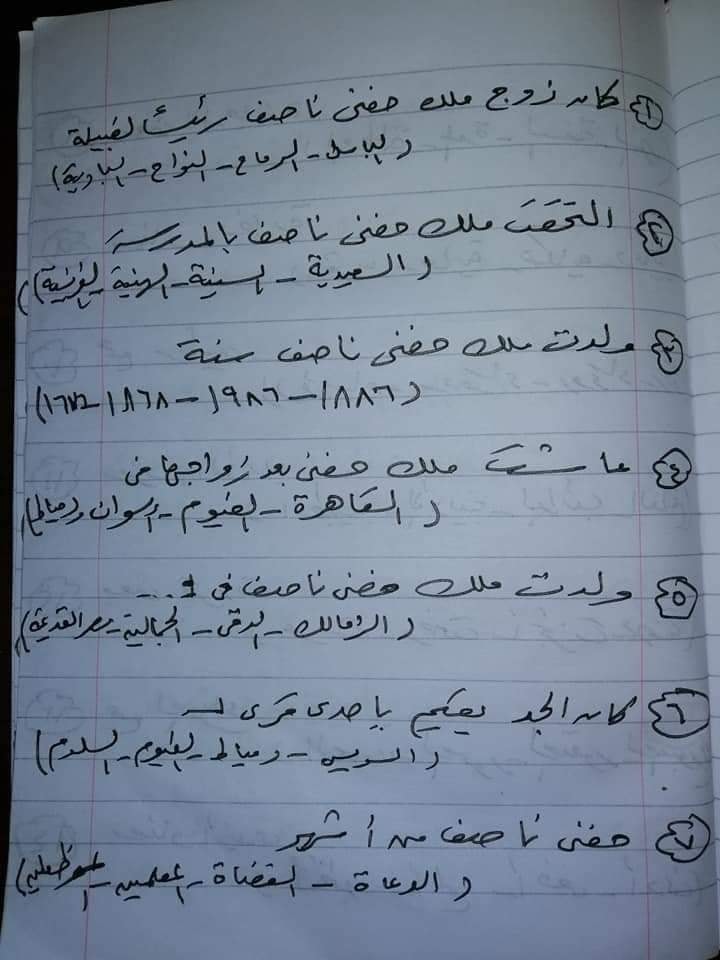 ١) كان زوج ملك حفنى ناصف رئيساً لقبيلة
(الباسل - الرماح - النواح - البادية)
٢) التحقت ملك حفنى ناصف بالمدرسة
(السعيدية - السنية - المهنية - الفرنسية)
٣) ولدت ملك حفنى ناصف سنة
(١٨٨٦ - ١٩٨٦ - ١٨٦٨ - ١٦٧٦)
٤) عاشت ملك حفنى بعد زواجها فى
(القاهرة - الفيوم - اسوان - دمياط)
٥) ولدت ملك حفنى ناصف فى ...
(الزمالك - الدقى - الجمالية - مصر القديمة)
٦) كان الجد يقيم بإحدى قرى
(السويس - دمياط - الفيوم - السلوم)
٧) حفنى ناصف من أشهر
(الدعاة - القضاة - المعلمين -